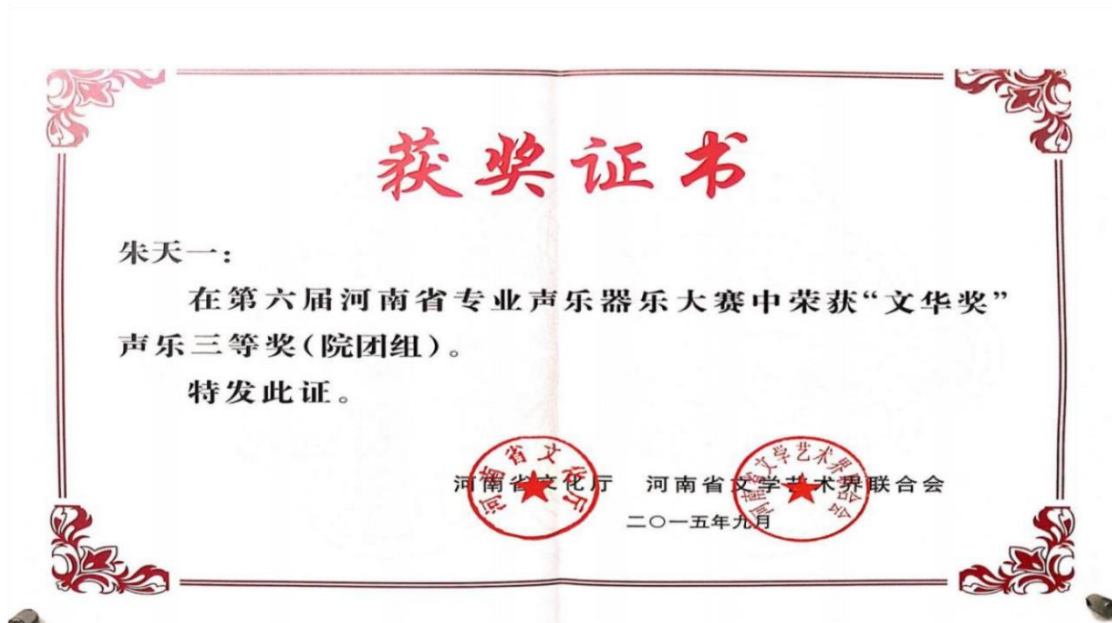 获奖证书
朱天一：
在第六届河南省专业声乐器乐大赛中荣获“文华奖”
声乐三等奖（院团组）。
特发此证。
河南省文化厅 河南省文学艺术界联合会
二〇一五年九月
河南省文化厅
河南省文学艺术界联合会